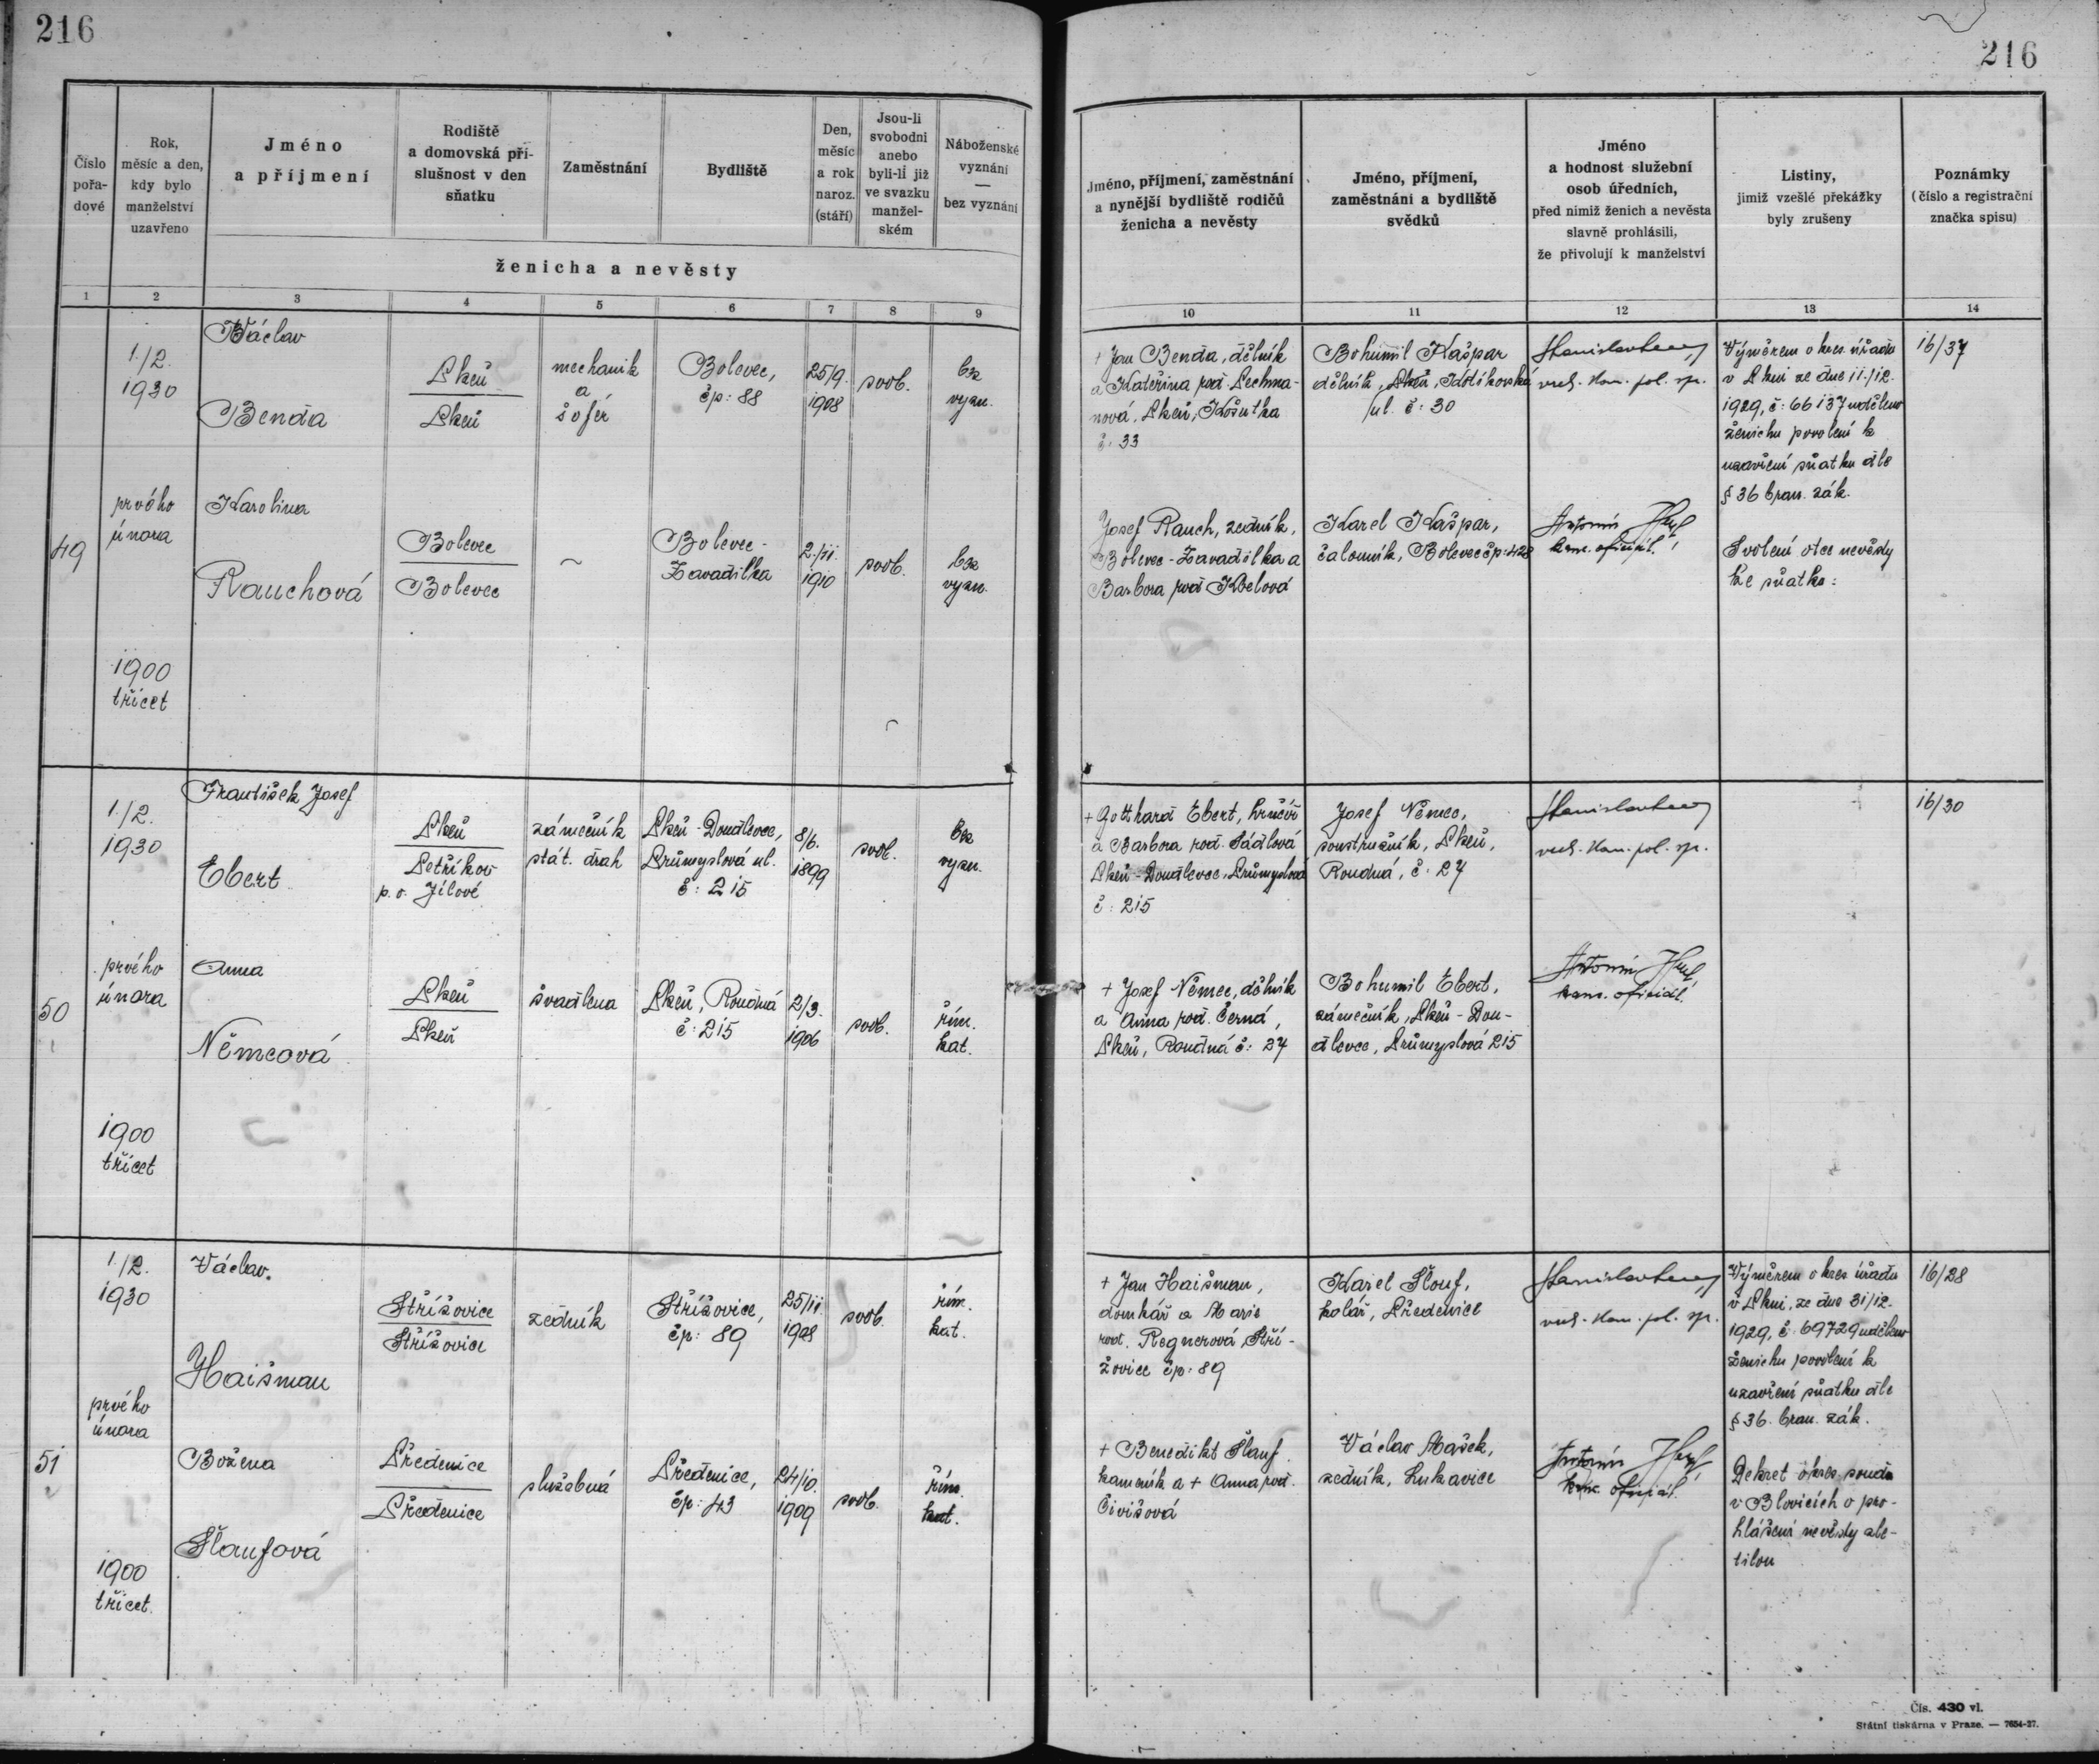 216
216
Číslo
pořa-
dové
Rok,
měsíc a den,
kdy bylo
manželství
uzavřeno
Jméno
a příjmení
Rodiště
a domovská pří-
slušnost v den
sňatku
Zaměstnání
Bydliště
Den,
měsíc
a rok
naroz.
(stáří)
Jsou-li
svobodni
anebo
byli-li již
ve svazku
manžel-
ském
Náboženské
vyznání
—
bez vyznání
ženicha a nevěsty
Jméno, příjmení, zaměstnání
a nynější bydliště rodičů
ženicha a nevěsty
Jméno, příjmení,
zaměstnání a bydliště
svědků
Jméno
a hodnost služební
osob úředních,
před nimiž ženich a nevěsta
slavně prohlásili,
že přivolují k manželství
Listiny,
jimiž vzešlé překážky
byly zrušeny
Poznámky
(číslo a registrační
značka spisu)
1 2 3 4 5 6 7 8 9 10 11 12 13 14
49
1./2.
1930
prvého
února
1900
třicet
Václav
Benda
Plzeň
Plzeň
mechanik
a
šofér
Bolevec,
čp: 88
25/9.
1908
svob.
bez
vyzn.
+ Jan Benda, dělník
a Kateřina roz. Lechma-
nová, Plzeň, Košutka
č. 33
Bohumil Kašpar
dělník, Plzeň, Kotíkovská
ul. č: 30
Stanislav
rada. kom. pol. sp.
Výměrem okres. úřadu
v Plzni ze dne 11./12.
1929, č: 66137 uděleno
ženichu povolení k
uzavření sňatku dle
§ 36 bran. zák.
16/37
Karolina
Rauchová
Bolevec
Bolevec
~
Bolevec-
Zavadilka
2./11.
1910
svob.
bez
vyzn.
Josef Rauch, zedník,
Bolevec-Zavadilka a
Barbora roz. Kbelová
Karel Kašpar,
čalouník, Bolevec čp: 428
Antonín
kanc. oficiál.
Svolení otce nevěsty
ke sňatku:
50
1./2.
1930
prvého
února
1900
třicet
František Josef
Ebert
Plzeň
Petříkov
p. o. Jílové
zámečník
stát. drah
Plzeň-Doudlevce,
Průmyslová ul.
č: 215
8/6.
1899
svob.
bez
vyzn.
+ Gotthard Ebert, hrnčíř
a Barbora roz. Pádlová
Plzeň-Doudlevce, Průmyslová
č: 215
Josef Němec,
soustružník, Plzeň,
Roudná, č. 27
Stanislav
rada. kom. pol. sp.
16/30
Anna
Němcová
Plzeň
Plzeň
švadlena
Plzeň, Roudná
č: 215
2/3.
1906
svob.
řím.
kat.
+ Josef Němec, dělník
a Anna roz. Černá,
Plzeň, Roudná č: 27
Bohumil Ebert,
zámečník, Plzeň-Dou-
dlevce, Průmyslová 215
Antonín
kanc. oficiál.
51
1./2.
1930
prvého
února
1900
třicet.
Václav.
Haišman
Střížovice
Střížovice
zedník
Střížovice,
čp: 89
25/11
1908
svob.
řím.
kat.
+ Jan Haišman,
domkář a Marie
roz. Regnerová, Stří-
žovice čp: 89
Karel Šlouf,
kolář, Předenice
Stanislav
rada. kom. pol. sp.
Výměrem okres úřadu
v Plzni, ze dne 31/12.
1929, č. 69729 uděleno
ženichu povolení k
uzavření sňatku dle
§ 36. bran. zák.
16/28
Božena
Šlaufová
Předenice
Předenice
služebná
Předenice,
čp: 43
24/10.
1909
svob.
řím.
kat.
+ Benedikt Šlauf
kameník a + Anna roz.
Čivišová
Václav Mašek,
zedník, Lukavice
Antonín
kanc. oficiál.
Dekret okres. soudu
v Blovicích o pro-
hlášení nevěsty zle-
tilou
Čís. 430 vl.
Státní tiskárna v Praze. — 7654-27.